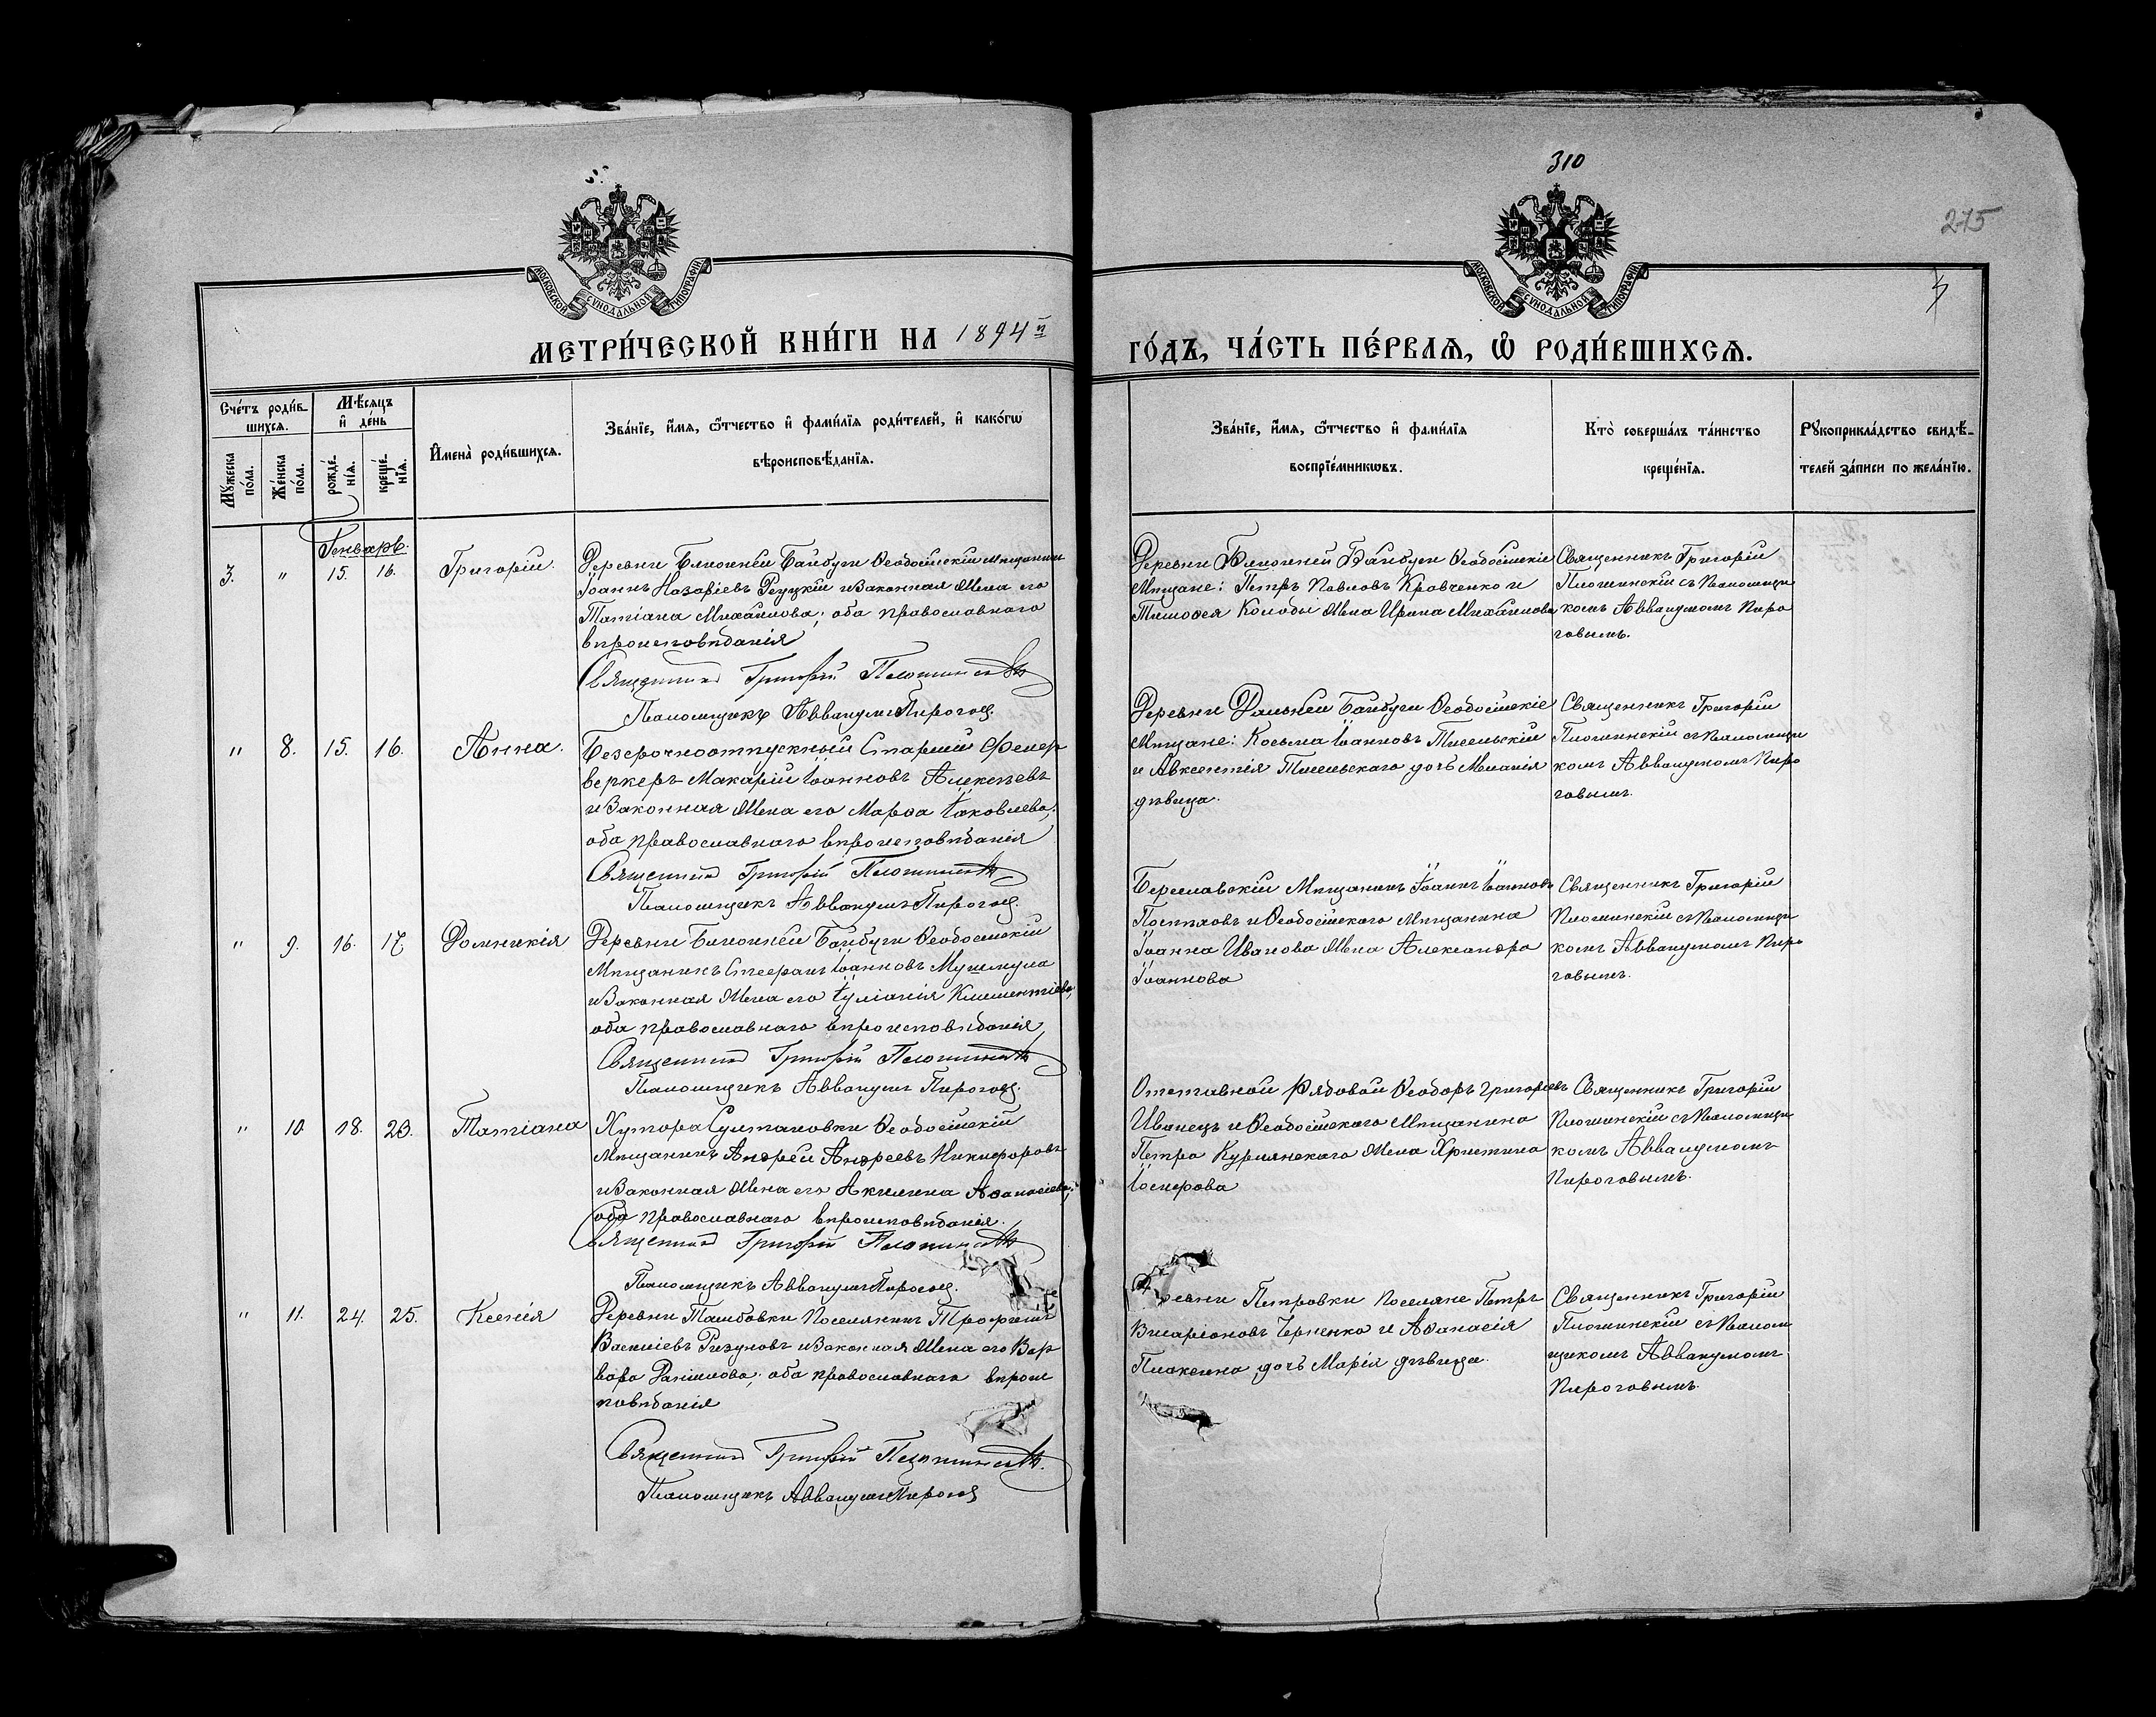 310
275
МОСКОВСКОЙ СѴНОДАЛЬНОЙ ТИПОГРАФІИ.
МОСКОВСКОЙ СѴНОДАЛЬНОЙ ТИПОГРАФІИ.
МЕТРИ́ЧЕСКОЙ КНИ́ГИ НА 1894 й
ГО́ДЪ, ЧА́СТЬ ПЕ́РВАѦ, Ѽ РОДИ́ВШИХСѦ.
Сче́тъ роди́в-
шихсѧ.
Мѣ́сяцъ
и҆ де́нь
Мꙋ́жеска
по́ла.
Же́нска
по́ла.
рожде́-
нїѧ.
креще́-
нїѧ.
И҆мена̀ роди́вшихсѧ.
Зва́нїе, и҆́мѧ, ѻ҆́тчество и҆ фами́лїѧ роди́телей, и҆ како́гѡ
вѣроисповѣ́данїѧ.
Зва́нїе, и҆́мѧ, ѻ҆́тчество и҆ фами́лїѧ
воспрїе́мникѡвъ.
Кто̀ соверша́лъ та́инство
креще́нїѧ.
Рꙋкоприкла́дство свидѣ́-
телей за́писи по жела́нїю.
Генварь.
3. " 15. 16. Григорій.
Деревни Ближней Байбуги Ѳеодосійскій мѣщанинъ
Іоаннъ Назаріевъ Реуцкій и законная жена его
Татіана Михайлова; оба православнаго
вѣроисповѣданія
Священникъ Григорій
Псаломщикъ Аввакумъ Пироговъ.
Деревни Ближней Байбуги Ѳеодосійскіе
Мѣщане: Петръ Павловъ Кравченко и
Тимоѳея жена Ирина Михайлова
Священникъ Григорій
съ Псаломщи
комъ Аввакумомъ Пиро
говымъ.
" 8. 15. 16. Анна.
Безсрочноотпускный Старшій Фейер
веркеръ Макарій Іоанновъ Алексѣевъ
и законная жена его Марѳа Іаковлева;
оба православнаго вѣроисповѣданія
Священникъ Григорій
Псаломщикъ Аввакумъ Пироговъ.
Деревни Дальней Байбуги Ѳеодосійскіе
Мѣщане: Косьма Іоанновъ
и Авксентія дочь Меланія
дѣвица.
Священникъ Григорій
съ Псаломщи
комъ Аввакумомъ Пиро
говымъ.
" 9. 16. 17. Домникія
Деревни Ближней Байбуги Ѳеодосійскій
Мѣщанинъ Стефанъ Іоанновъ Мушмула
и законная жена его Іуліанія Климентіева;
оба православнаго вѣроисповѣданія
Священникъ Григорій
Псаломщикъ Аввакумъ Пироговъ.
Бериславскій Мѣщанинъ Іоаннъ Іоанновъ
и Ѳеодосійскаго Мѣщанина
Іоанна Иванова жена Александра
Іоаннова
Священникъ Григорій
съ Псаломщи
комъ Аввакумомъ Пиро
говымъ.
" 10. 18. 23. Татіана
Хутора Султановки Ѳеодосійскій
Мѣщанинъ Андрей Андреевъ Никифоровъ
и законная жена его Акилина Аѳанасіева;
оба православнаго вѣроисповѣданія.
Священникъ Григорій
Псаломщикъ Аввакумъ Пироговъ.
Отставной рядовой Ѳеодоръ Григорьевъ
Иванецъ и Ѳеодосійскаго Мѣщанина
Петра Курлянскаго жена Христина
Іосифова
Священникъ Григорій
съ Псаломщи
комъ Аввакумомъ
Пироговымъ.
" 11. 24. 25. Ксенія
Деревни Тамбовки Поселянинъ Трофимъ
Васильевъ Ризуновъ и законная жена его Вар
вара Даніилова; оба православнаго вѣроис
повѣданія
Священникъ Григорій
Псаломщикъ Аввакумъ Пироговъ
Деревни Петровки Поселяне Петръ
Висаріоновъ Черненко и Аѳанасія
Плаксина дочь Марія дѣвица.
Священникъ Григорій
съ Псалом
щикомъ Аввакумомъ
Пироговымъ.